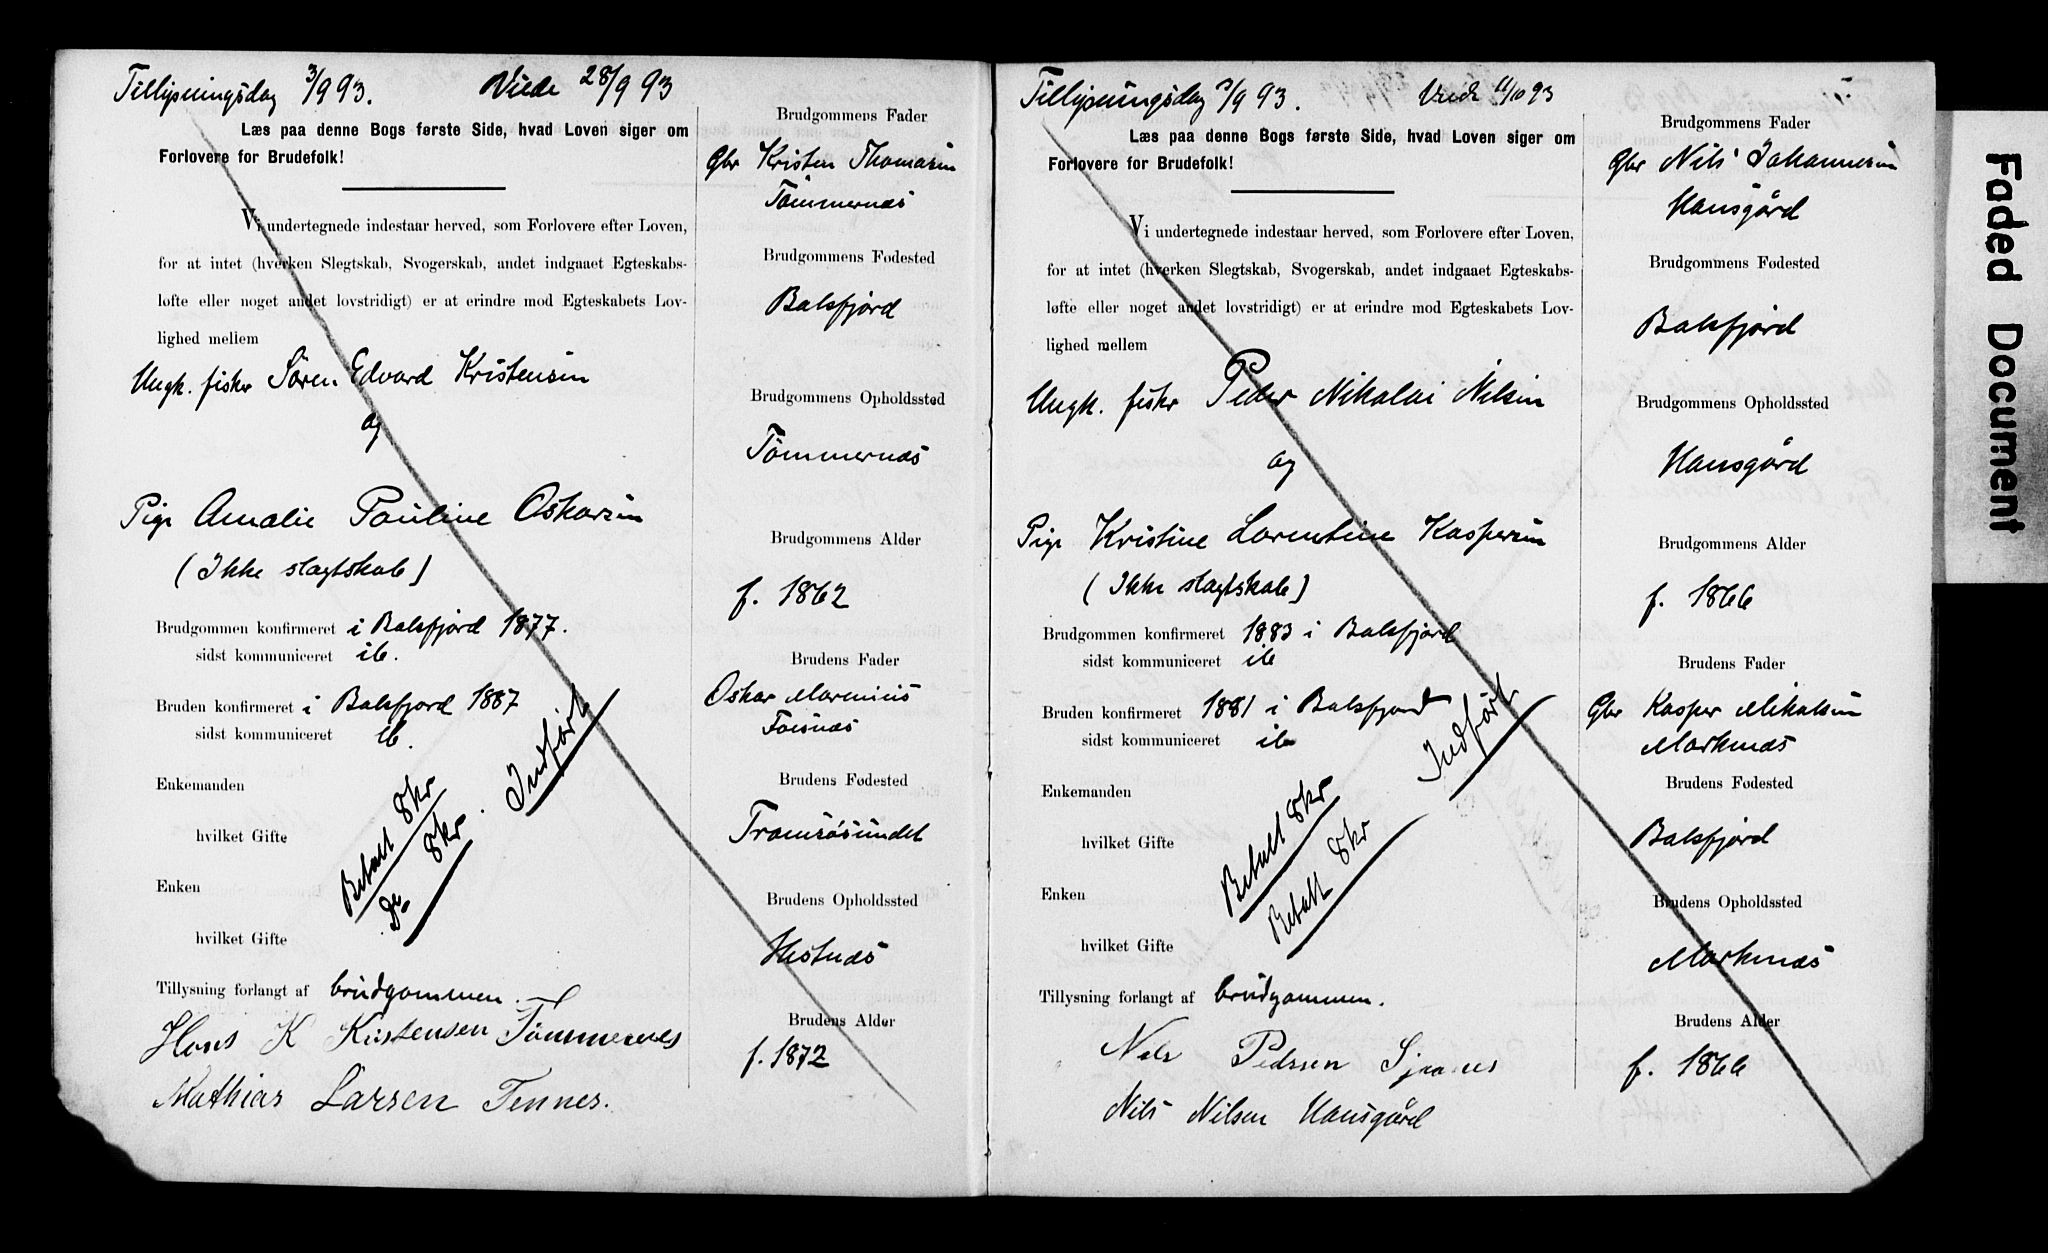 Tillysningsdag 3/9 93. Viede 28/9 93
Læs paa denne Bogs første Side, hvad Loven siger om
Forlovere for Brudefolk!
Vi undertegnede indestaar herved, som Forlovere efter Loven,
for at intet (hverken Slegtskab, Svogerskab, andet indgaaet Egteskabs-
løfte eller noget andet lovstridigt) er at erindre mod Egteskabets Lov-
lighed mellem
Ungk. fisker Sören Edvard Kristensen
og
Pige Amalie Pauline Oskarsen
(Ikke slægtskab)
Brudgommen konfirmeret i Balsfjord 1877.
sidst kommuniceret ib.
Bruden konfirmeret i Balsfjord 1887
sidst kommuniceret ib.
Enkemanden
hvilket Gifte
Enken
hvilket Gifte
Betalt 8 kr
do. 8 kr.
Indført
Tillysning forlangt af brudgommen.
Hans K Kristensen Tömmernes
Mathias Larsen Tennes.
Brudgommens Fader
Gbr Kristen Thomassen
Tömmernæs
Brudgommens Fødested
Balsfjord
Brudgommens Opholdssted
Tömmernæs
Brudgommens Alder
f. 1862
Brudens Fader
Oskar Marenius
Brudens Fødested
Tromsösundet
Brudens Opholdssted
Hestnæs
Brudens Alder
f. 1872
Tillysningsdag 3/9 93. Viede 11/10 93
Læs paa denne Bogs første Side, hvad Loven siger om
Forlovere for Brudefolk!
Vi undertegnede indestaar herved, som Forlovere efter Loven,
for at intet (hverken Slegtskab, Svogerskab, andet indgaaet Egteskabs-
løfte eller noget andet lovstridigt) er at erindre mod Egteskabets Lov-
lighed mellem
Ungk. fisker Peder Nikolai Nilsen
og
Pige Kristine Lorentine Kaspersen
(Ikke slægtskab)
Brudgommen konfirmeret 1883 i Balsfjord
sidst kommuniceret ib
Bruden konfirmeret 1881 i Balsfjord
sidst kommuniceret ib
Enkemanden
hvilket Gifte
Enken
hvilket Gifte
Betalt 8 kr
Betalt 8 kr
Indført
Tillysning forlangt af brudgommen.
Nils Pedersen
Nils Nilsen Hansgård
Brudgommens Fader
Gbr Nils Johannesen
Hansgård
Brudgommens Fødested
Balsfjord
Brudgommens Opholdssted
Hansgård
Brudgommens Alder
f. 1866
Brudens Fader
Gbr Kasper Mikalsen
Markenæs
Brudens Fødested
Balsfjord
Brudens Opholdssted
Markenæs
Brudens Alder
f. 1866
Faded Document